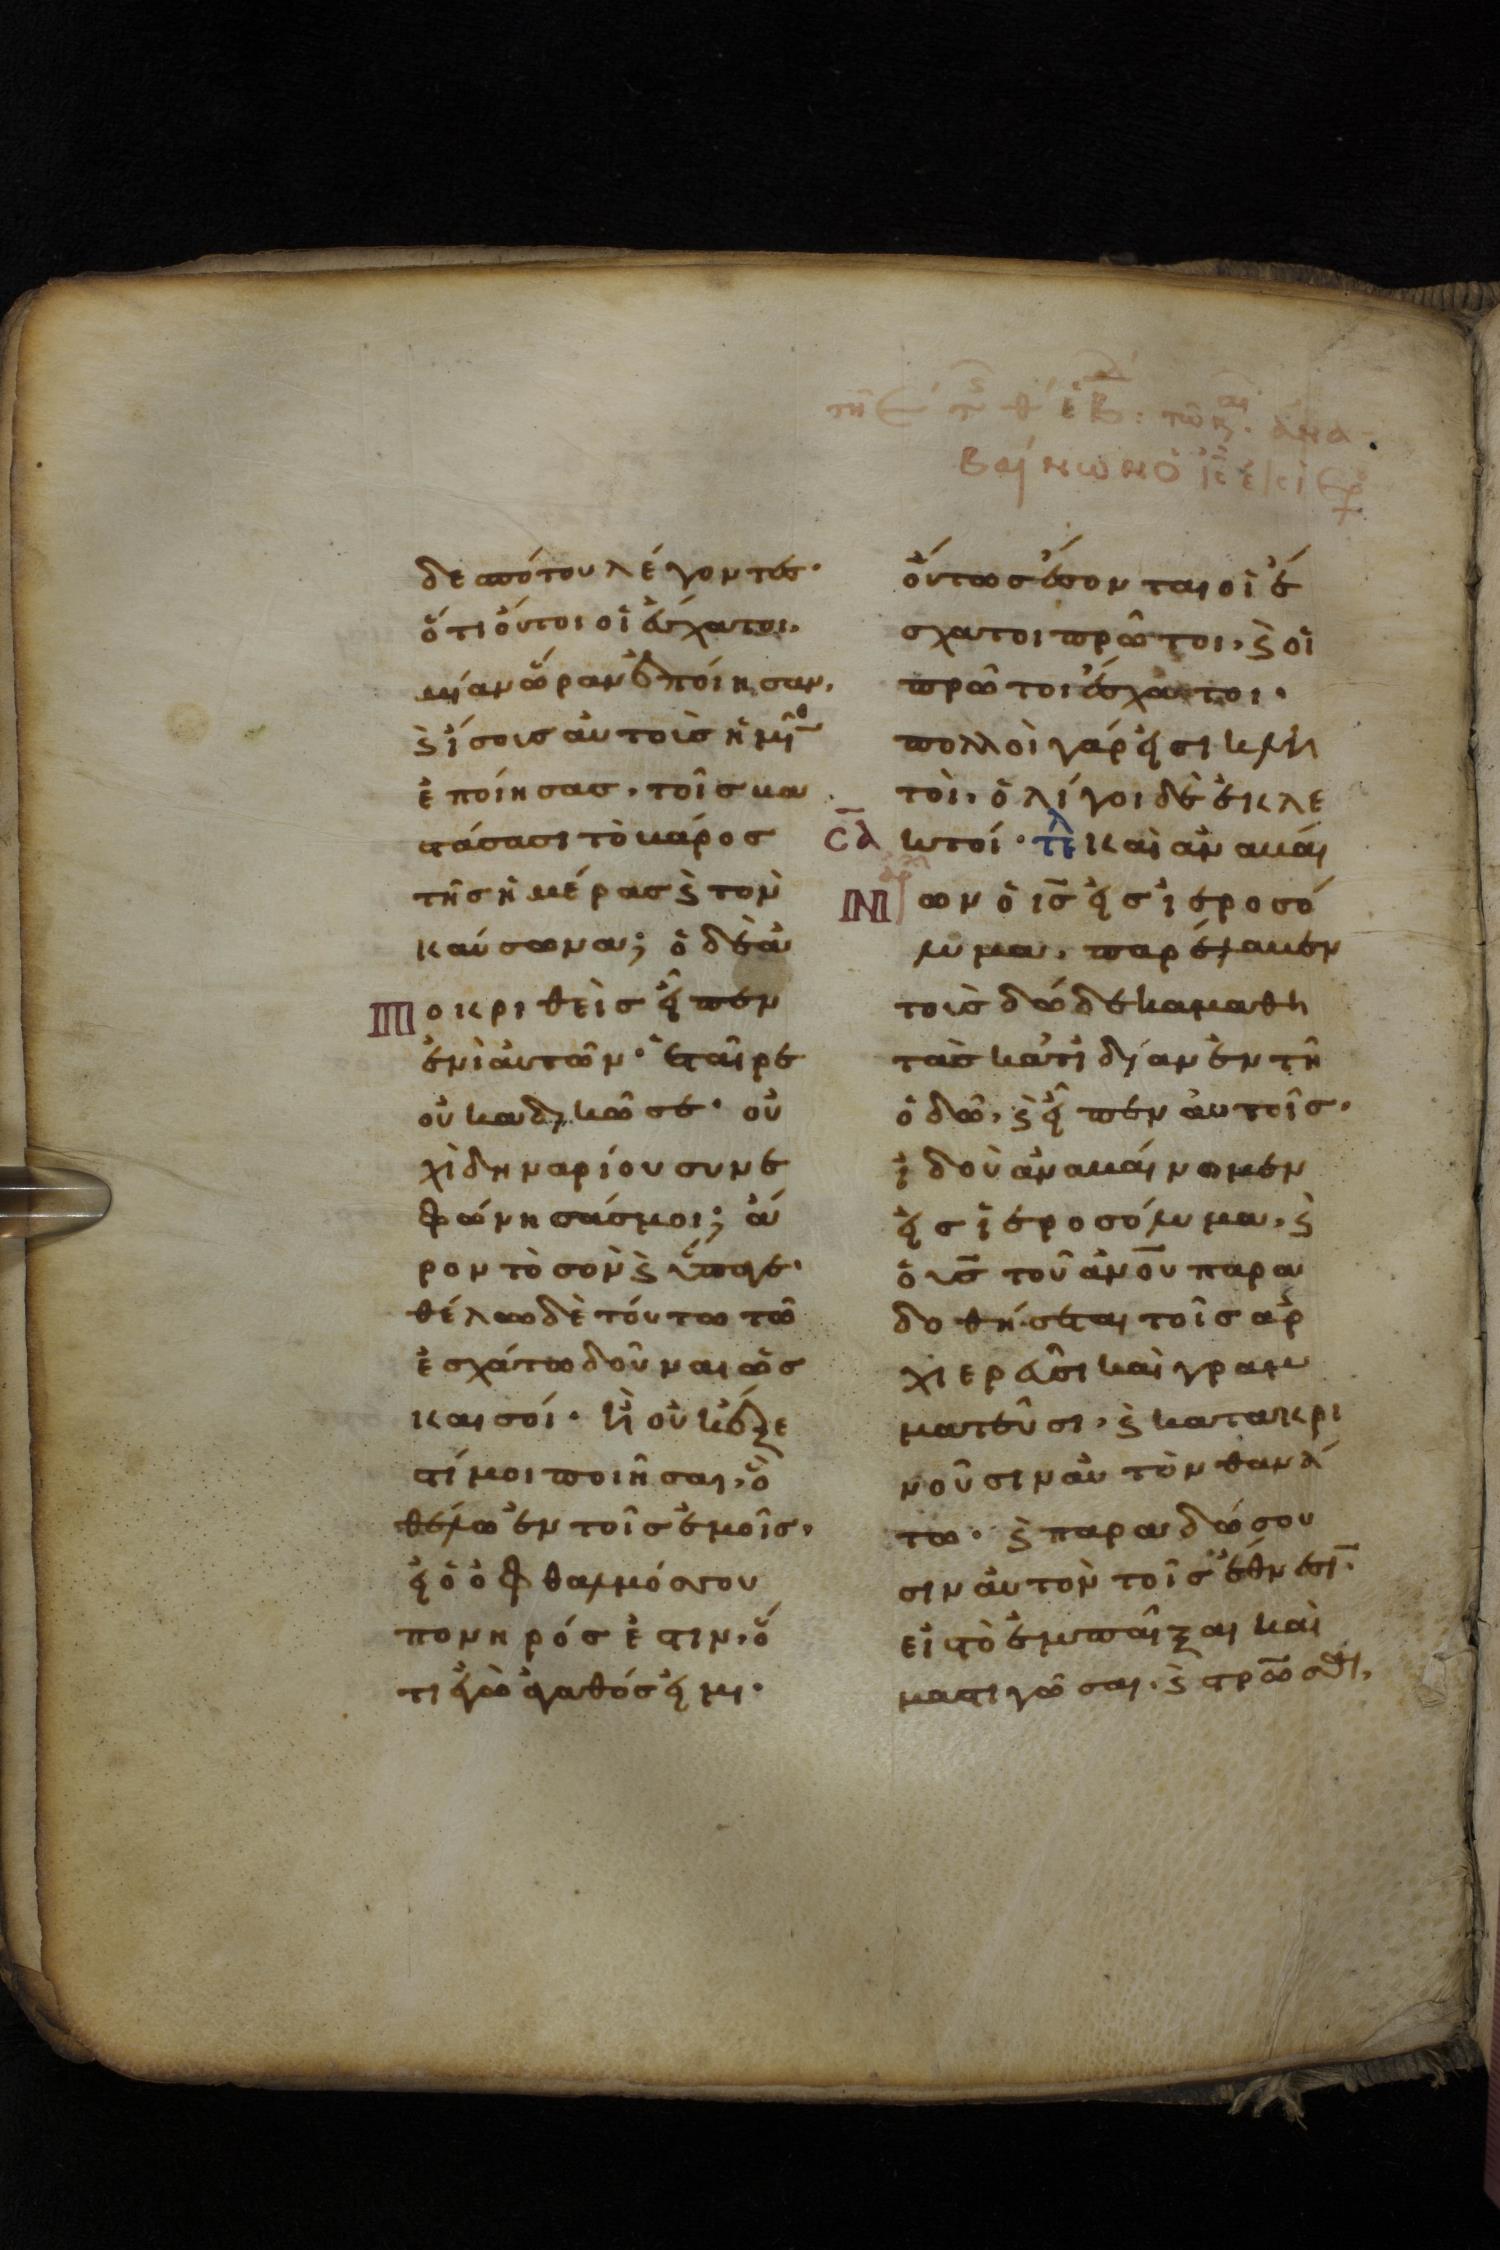 βαίνων ὁ ις εἰς
δεσπότου λέγοντες·
ὅτι οὗτοι οἱ ἔσχατοι,
μίαν ὥραν ἐποίησαν,
ϗ ἴσους αὐτοὺς ἡμῖν
ἐποίησας, τοῖς βα
στάσασι τὸ βάρος
τῆς ἡμέρας ϗ τὸν
καύσωνα; ὁ δὲ ἀ
ποκριθεὶς εἶπεν
ἑνὶ αὐτῶν· ἑταῖρε
οὐκ ἀδικῶ σε· οὐ
χὶ δηναρίου συνε
φώνησάς μοι; ἆ
ρον τὸ σὸν ϗ ὕπαγε·
θέλω δὲ τούτω τῶ
ἐσχάτω δοῦναι ὡς
καὶ σοί· ἢ οὐκ ἔξε
στί μοι ποιῆσαι, ὃ
θέλω ἐν τοῖς ἐμοῖς,
εἰ ὁ ὀφθαλμός σου
πονηρός ἐστιν, ὅ
τι ἐγὼ ἀγαθός εἰμι·
οὕτως ἔσονται οἱ ἔ
σχατοι πρῶτοι, ϗ οἱ
πρῶτοι ἔσχατοι·
πολλοὶ γάρ εἰσι κλη
τοὶ, ὀλίγοι δὲ ἐκλε
σα κτοί· τλ Καὶ ἀναβαί
νων ὁ ις εἰς ἱεροσό
λυμα, παρέλαβεν
τοὺς δώδεκα μαθη
τὰς κατ' ἰδίαν ἐν τῆ
ὁδῶ, ϗ εἶπεν αὐτοῖς·
ἰδοὺ ἀναβαίνομεν
εἰς ἱεροσόλυμα, ϗ
ὁ υς τοῦ ανου παρα
δοθήσεται τοῖς ἀρ
χιερεῦσι καὶ γραμ
ματεῦσι, ϗ κατακρι
νοῦσιν αὐτὸν θανά
τω· ϗ παραδώσου
σιν αὐτὸν τοῖς ἔθνεσι·
εἰς τὸ ἐμπαῖξαι καὶ
μαστιγῶσαι, ϗ στρωσαι,